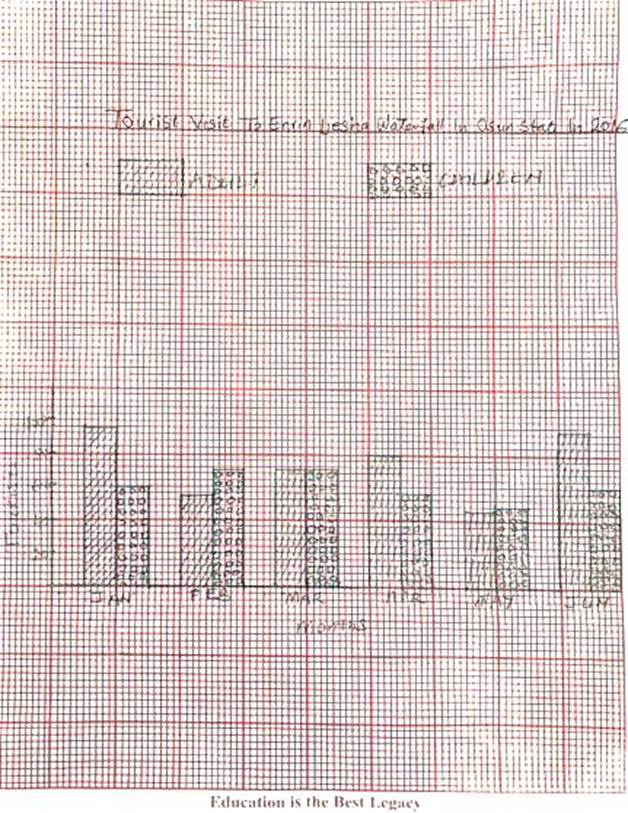 Tourist Visit To Errin Lesha Waterfall In Osun State In 2016
ADULT
CHILDREN
JAN
FEB
MAR
APR
MAY
JUN
Months
Education is the Best Legacy